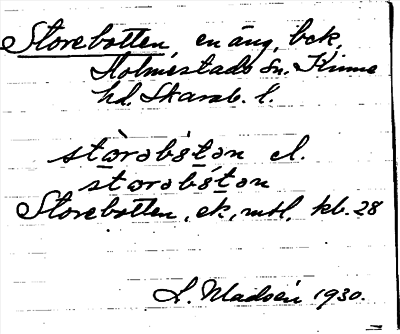 Storebotten, en äng, bek.
Holmestads sn. Kinne
hd. Skarab. l.
stòrəbòtən el.
stòrəbótən
Storebotten, ek, mtl. kb. 28
L. Madsén 1930.